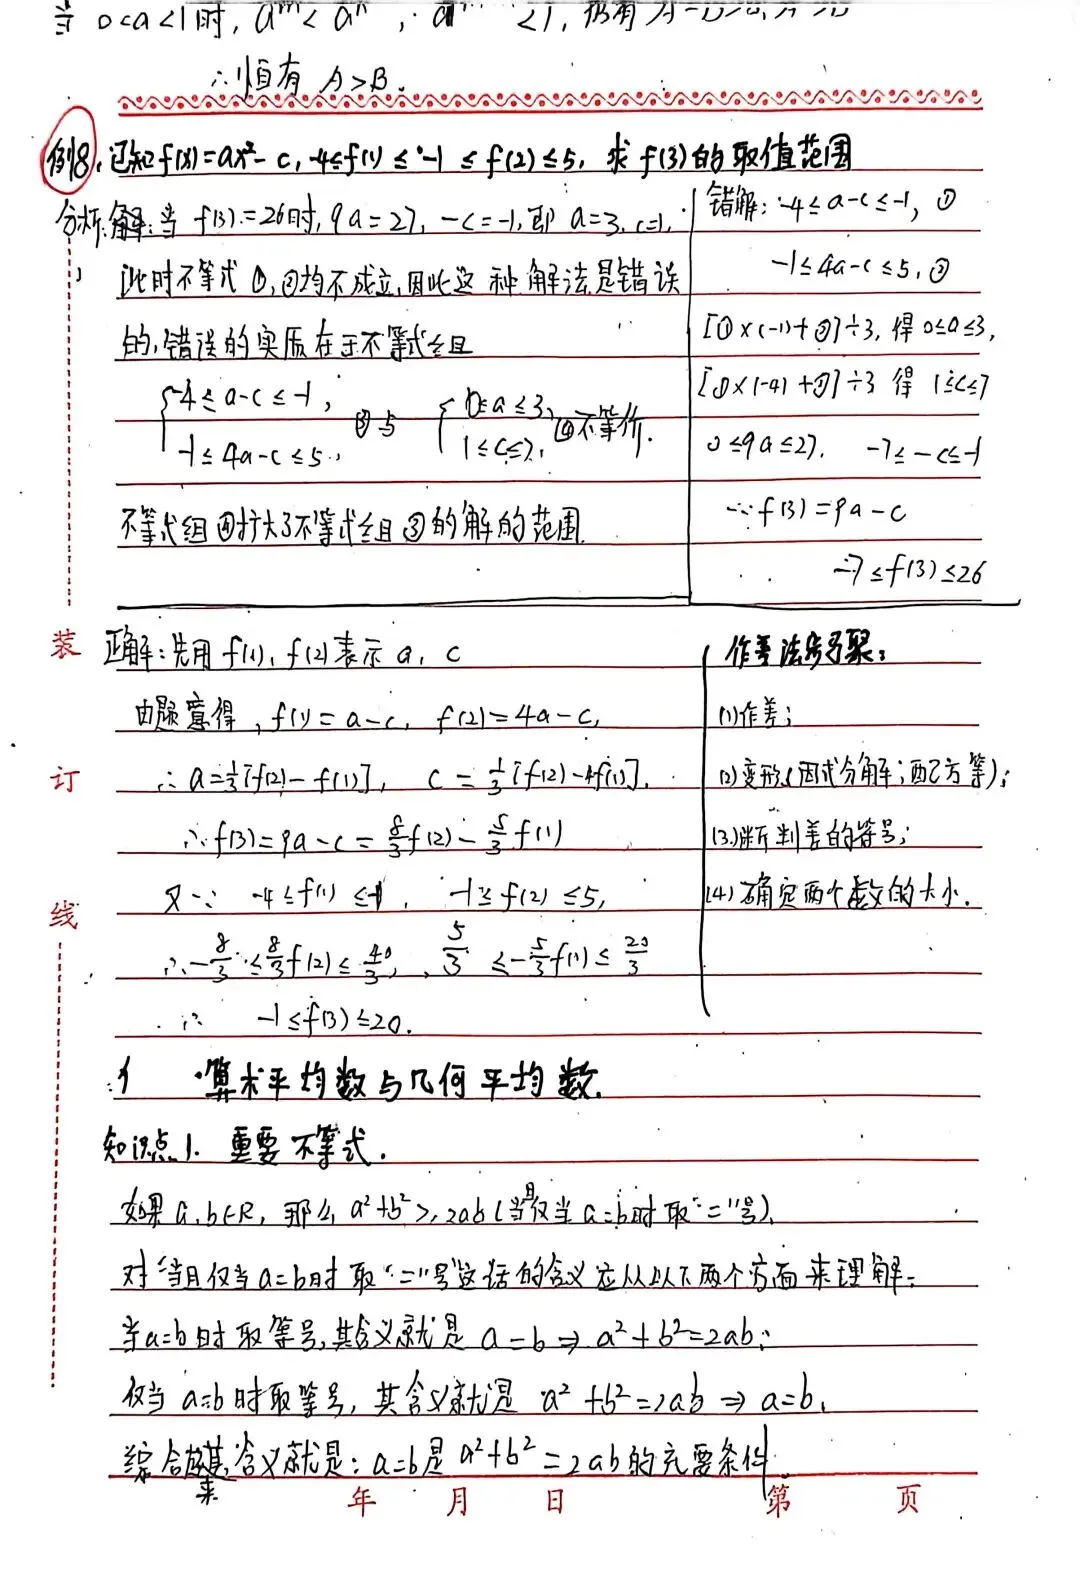 当 0<a<1时, aᵐ < aⁿ, <1, 仍有
∴恒有 A>B.
例8. 已知f(x)=ax²-c, -4≤f(1)≤-1 ≤f(2)≤5, 求f(3)的取值范围
分析:解:当 f(3)=26时, 9a=27, -c=-1,即 a=3, c=1,
此时不等式①,②均不成立,因此这种解法是错误
的,错误的实质在于不等式组
{-4≤a-c≤-1, -1≤4a-c≤5, ③与 {0≤a≤3, 1≤c≤7, ④不等价.
不等式组④扩大了不等式组③的解的范围.
错解: -4≤a-c≤-1, ①
-1≤4a-c≤5, ②
[①×(-1)+②]÷3, 得 0≤a≤3,
[①×(-4)+②]÷3 得 1≤c≤7
0≤9a≤27, -7≤-c≤-1
∵f(3)=9a-c
-7≤f(3)≤26
正解:先用 f(1), f(2)表示 a, c
由题意得, f(1)=a-c, f(2)=4a-c,
∴a=1/3[f(2)-f(1)], c=1/3[f(2)-4f(1)].
∴f(3)=9a-c=8/3f(2)-5/3f(1)
又∵ -4≤f(1)≤-1, -1≤f(2)≤5,
∴-8/3≤8/3f(2)≤40/3, 5/3≤-5/3f(1)≤20/3
∴ -1≤f(3)≤20.
作差法步骤:
(1)作差;
(2)变形(因式分解;配方等);
(3)断判差的符号;
(4)确定两个数的大小.
算术平均数与几何平均数.
知识点1. 重要不等式.
如果a,b∈R, 那么 a²+b²≥2ab(当且仅当a=b时取"="号).
对"当且仅当a=b时取"="号"这话的含义应从以下两个方面来理解:
当a=b时取等号,其含义就是 a=b⇒a²+b²=2ab;
仅当a=b时取等号, 其含义就是 a²+b²=2ab⇒a=b.
综合起来其含义就是: a=b是a²+b²=2ab的充要条件.
装
订
线
年 月 日 第 页